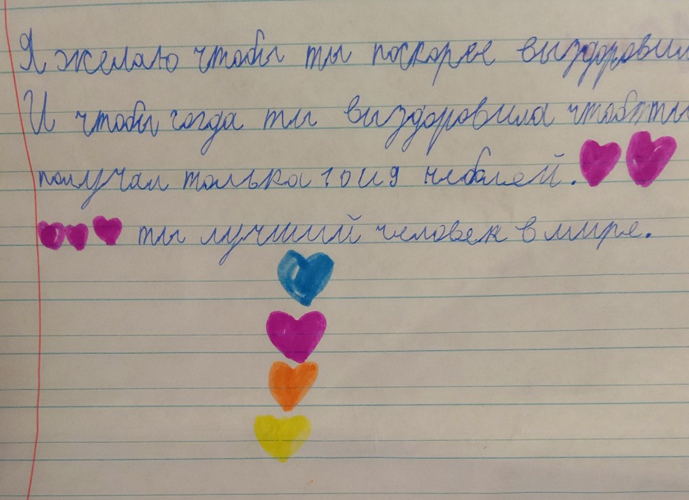 Я желаю чтобы ты поскорее выздоровил
И чтобы когда ты выздоровила чтобы ты
получал толька 10 и 9 баллей.
ты лучший человек в мире.